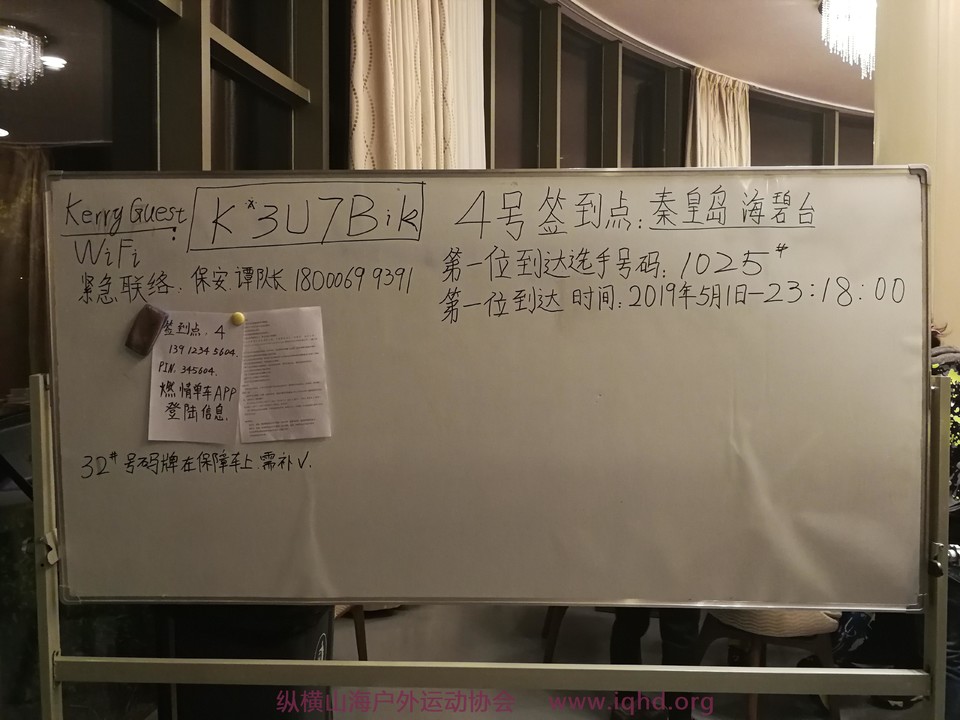 Kerry Guest
WiFi
: K*3U7Bik
4号签到点:秦皇岛 海碧台
第一位到达选手号码:1025#
紧急联络:保安.谭队长 18000699391
第一位到达时间:2019年5月1日-23:18:00
签到点:4
13912345604.
PIN:345604.
燃情单车APP
登陆信息.
32#号码牌在保障车上.需补√.
纵横山海户外运动协会 www.iqhd.org